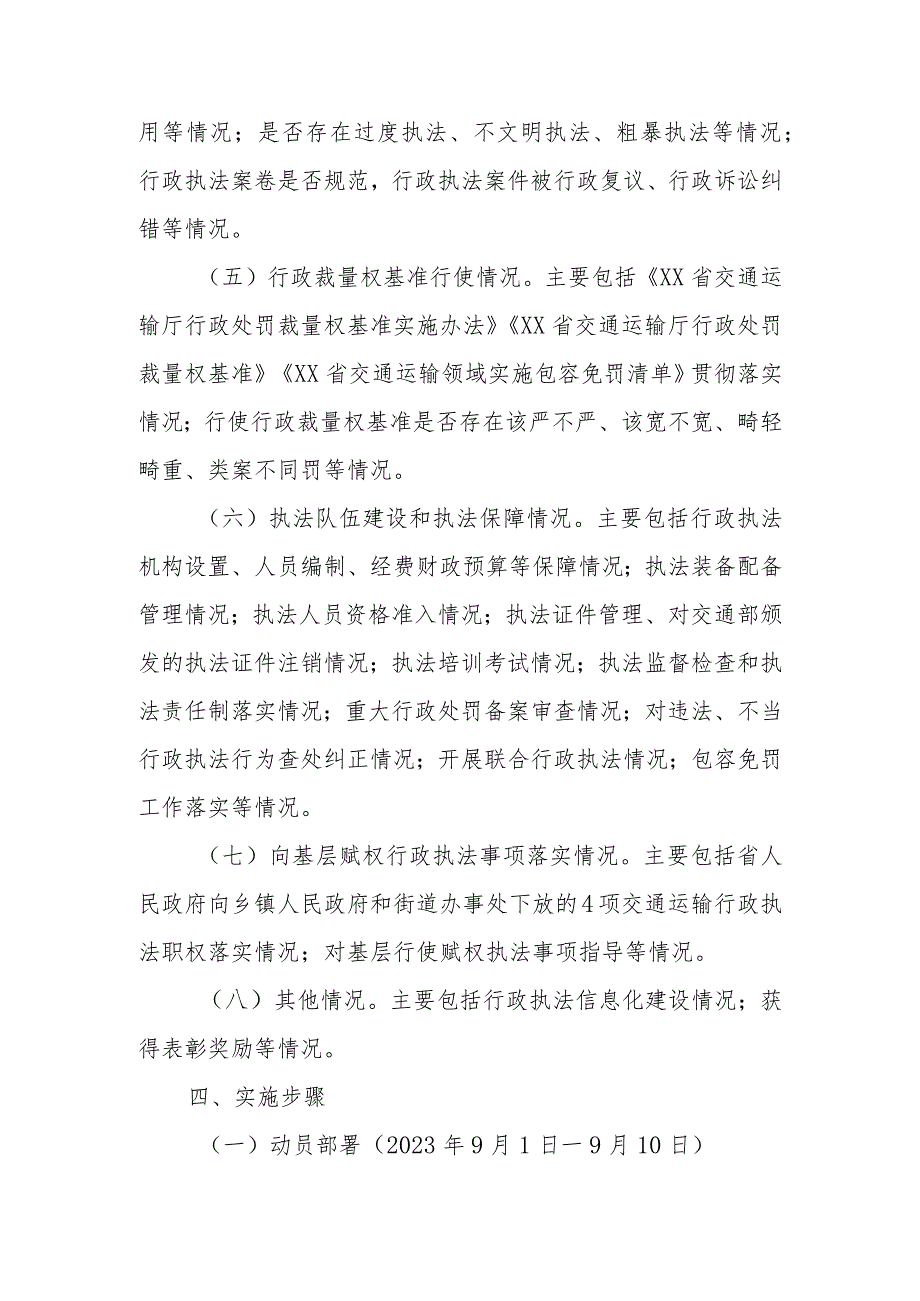 用等情况；是否存在过度执法、不文明执法、粗暴执法等情况；
行政执法案卷是否规范，行政执法案件被行政复议、行政诉讼纠
错等情况。
（五）行政裁量权基准行使情况。主要包括《XX省交通运
输厅行政处罚裁量权基准实施办法》《XX省交通运输厅行政处罚
裁量权基准》《XX省交通运输领域实施包容免罚清单》贯彻落实
情况；行使行政裁量权基准是否存在该严不严、该宽不宽、畸轻
畸重、类案不同罚等情况。
（六）执法队伍建设和执法保障情况。主要包括行政执法
机构设置、人员编制、经费财政预算等保障情况；执法装备配备
管理情况；执法人员资格准入情况；执法证件管理、对交通部颁
发的执法证件注销情况；执法培训考试情况；执法监督检查和执
法责任制落实情况；重大行政处罚备案审查情况；对违法、不当
行政执法行为查处纠正情况；开展联合行政执法情况；包容免罚
工作落实等情况。
（七）向基层赋权行政执法事项落实情况。主要包括省人
民政府向乡镇人民政府和街道办事处下放的4项交通运输行政执
法职权落实情况；对基层行使赋权执法事项指导等情况。
（八）其他情况。主要包括行政执法信息化建设情况；获
得表彰奖励等情况。
四、实施步骤
（一）动员部署（2023年9月1日一9月10日）